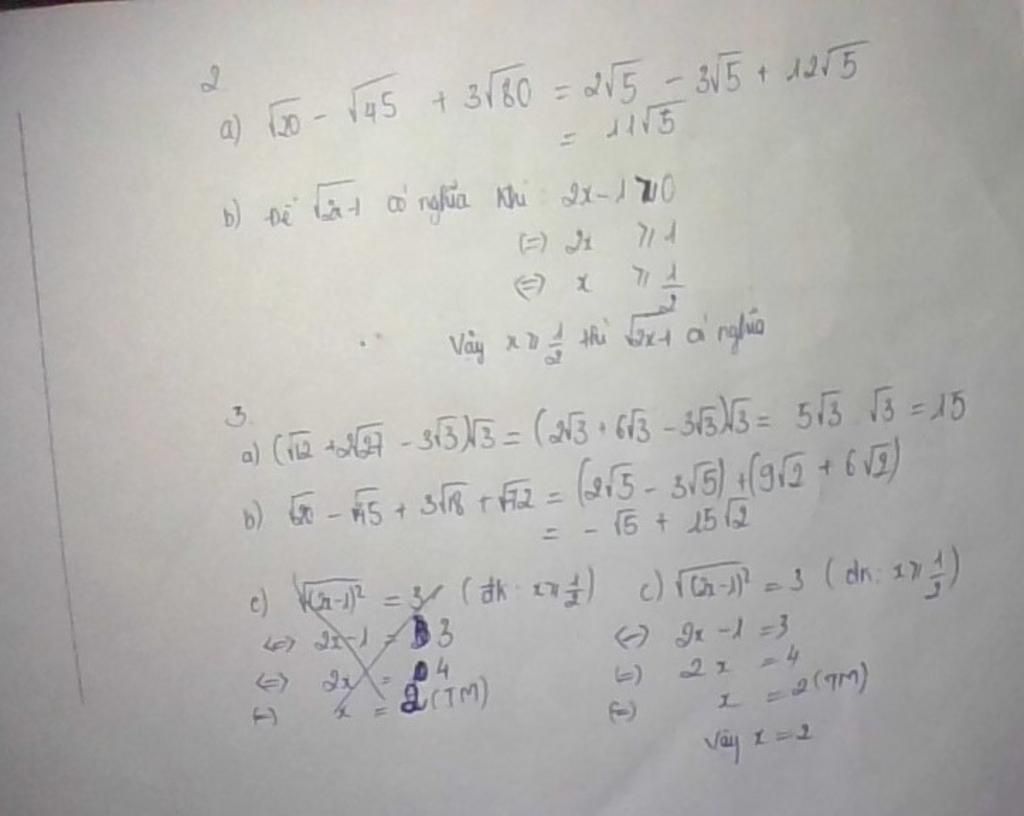 2
a) √20 - √45 + 3√80 = 2√5 - 3√5 + 12√5
= 11√5
b) Để √2x-1 có nghĩa khi 2x-1 ⩾ 0
(=) 2x ⩾ 1
<=> x ⩾ 1/2
Vậy x ⩾ 1/2 thì √2x-1 có nghĩa
3.
a) (√12 + 2√27 - 3√3)√3 = (2√3 + 6√3 - 3√3)√3 = 5√3 . √3 = 15
b) √20 - √45 + 3√18 + √72 = (2√5 - 3√5) + (9√2 + 6√2)
= - √5 + 15√2
c) √(2x-1)² = 3 (đk: x ⩾ 1/2)
<=> 2x-1 = 3
<=> 2x = 4
(=) x = 2 (TM)
c) √(2x-1)² = 3 (đk: x ⩾ 1/2)
(=) 2x - 1 = 3
(=) 2x = 4
(=) x = 2 (TM)
Vậy x = 2